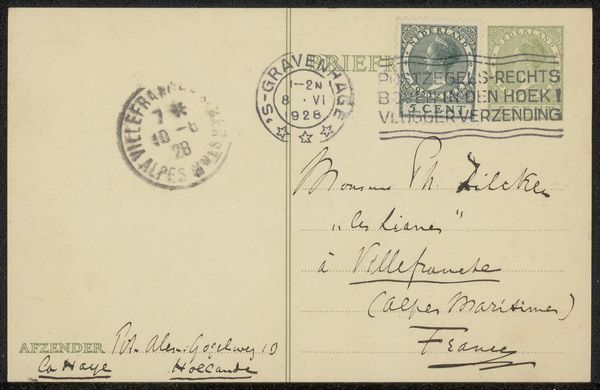 BRIEFK
NEDERLAND
5 CENT
NEDERLAND
'S-GRAVENHAGE
1-2N
8 VI
1928
POSTZEGELS-RECHTS
BOVEN IN DEN HOEK!
VLUGGER VERZENDING
VILLEFRANCHE
7 *
10-6
28
ALPES MARITMES
Monsieur Ph. Zilcken
„Les Lianes"
à Villefranche
(Alpes Maritimes)
France
AFZENDER
La Haye
Hollande